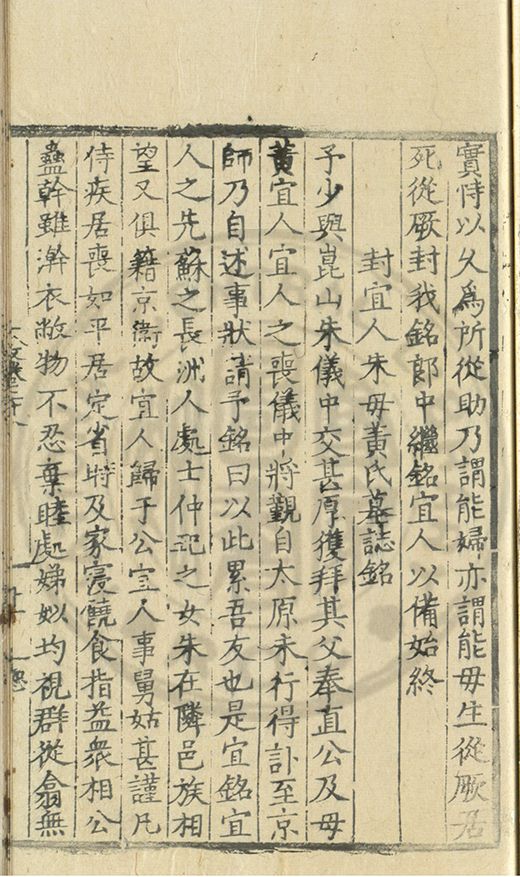 實恃以久爲所從助乃謂能婦亦謂能母生從厥居
死從厥封我銘郎中繼銘宜人以備始終
封宜人朱母黃氏墓誌銘
予少與崑山朱儀中交甚厚獲拜其父奉直公及母
黃宜人宜人之喪儀中將覲自太原未行得訃至京
師乃自述事狀請予銘曰以此累吾友也是宜銘宜
人之先蘇之長洲人處士仲之女朱在隣邑族相
望又俱籍京衛故宜人歸于公宜人事舅姑甚謹凡
侍疾居喪如平居定省時及家寖饒食指益衆相公
蠱幹雖澣衣敝物不忍棄睦處娣姒均視群從翕無